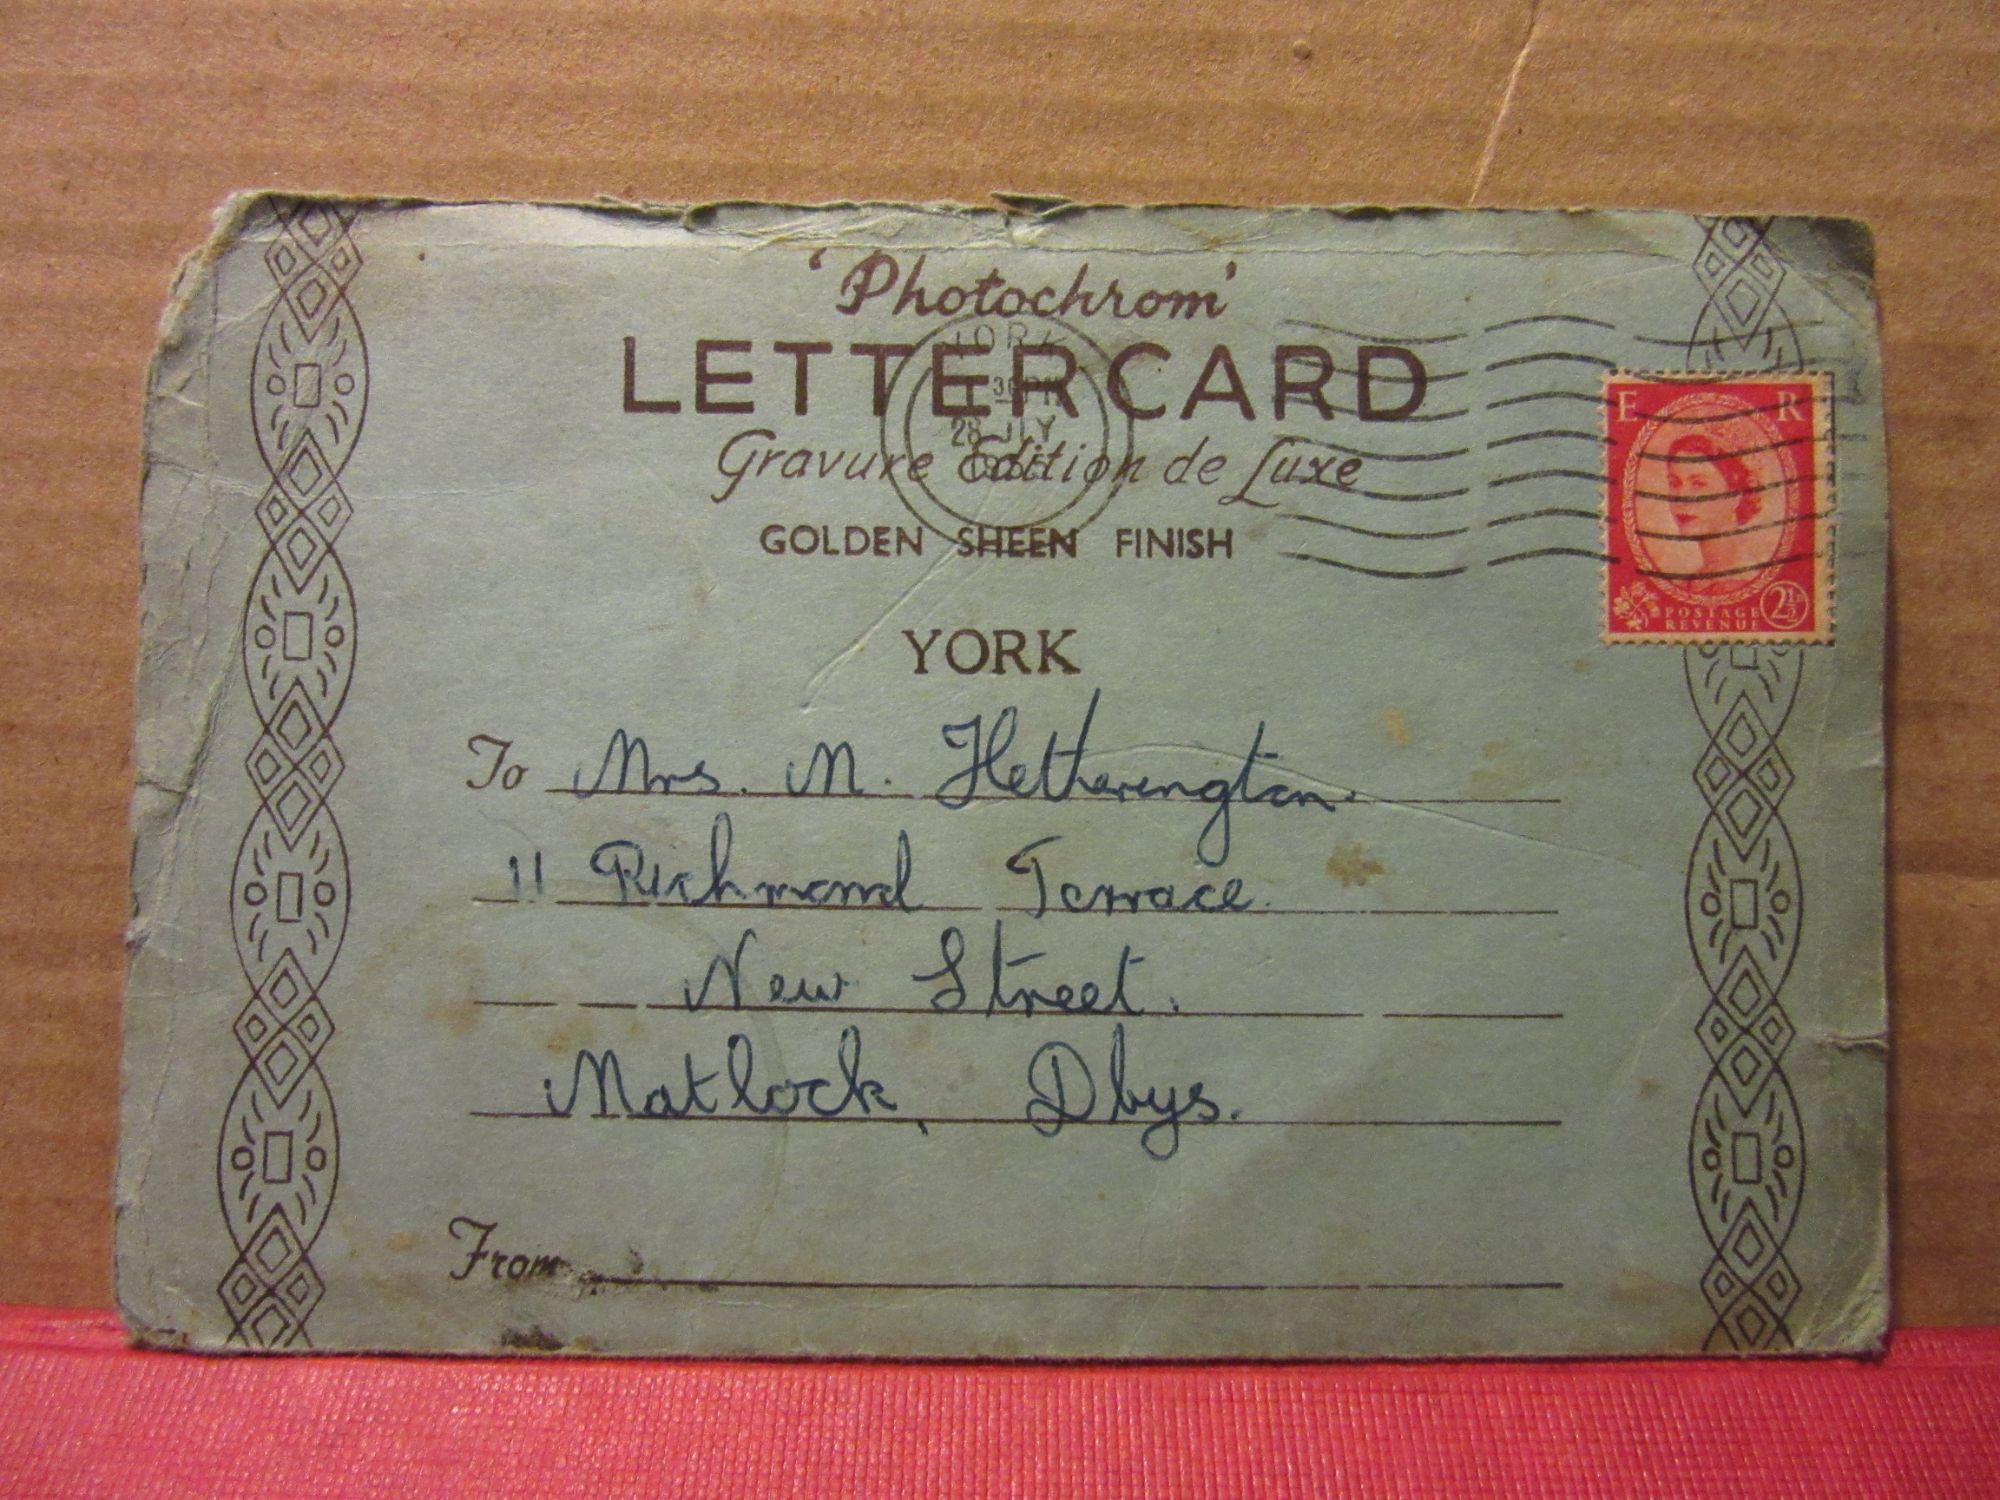 'Photochrom'
LETTER CARD
YORK
30 PM
28 JLY
Gravure Edition de Luxe
GOLDEN SHEEN FINISH
E R
POSTAGE
REVENUE
2½D
YORK
To Mrs. M. Hetherington.
11 Richmond Terrace.
New Street.
Matlock, Dbys.
From